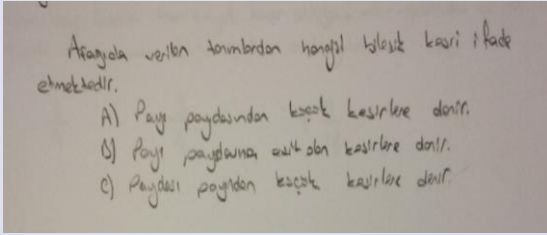 Aşağıda verilen tanımlardan hangisi bileşik kesri ifade
etmektedir.
A) Payı paydasından küçük kesirlere denir.
B) Payı paydasına eşit olan kesirlere denir.
C) Paydası payından küçük kesirlere denir.